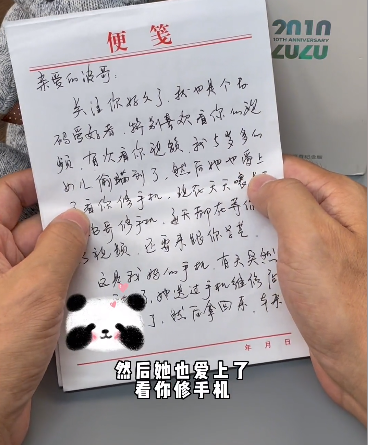 2010
10TH ANNIVERSARY
2020
便笺
亲爱的波哥:
关注你好久了,我也是个数
码爱好者,特别喜欢看你的视
频,有次看你视频,我5岁多的
女儿偷瞄到了,然后她也爱上
了看你修手机,现在天天
修手机,每天都在等你
视频,还要来跟你学
这是我妈的手机,有天突然
了,她送过手机维修店
了,然后拿回来,
年 月 日
然后她也爱上了
看你修手机